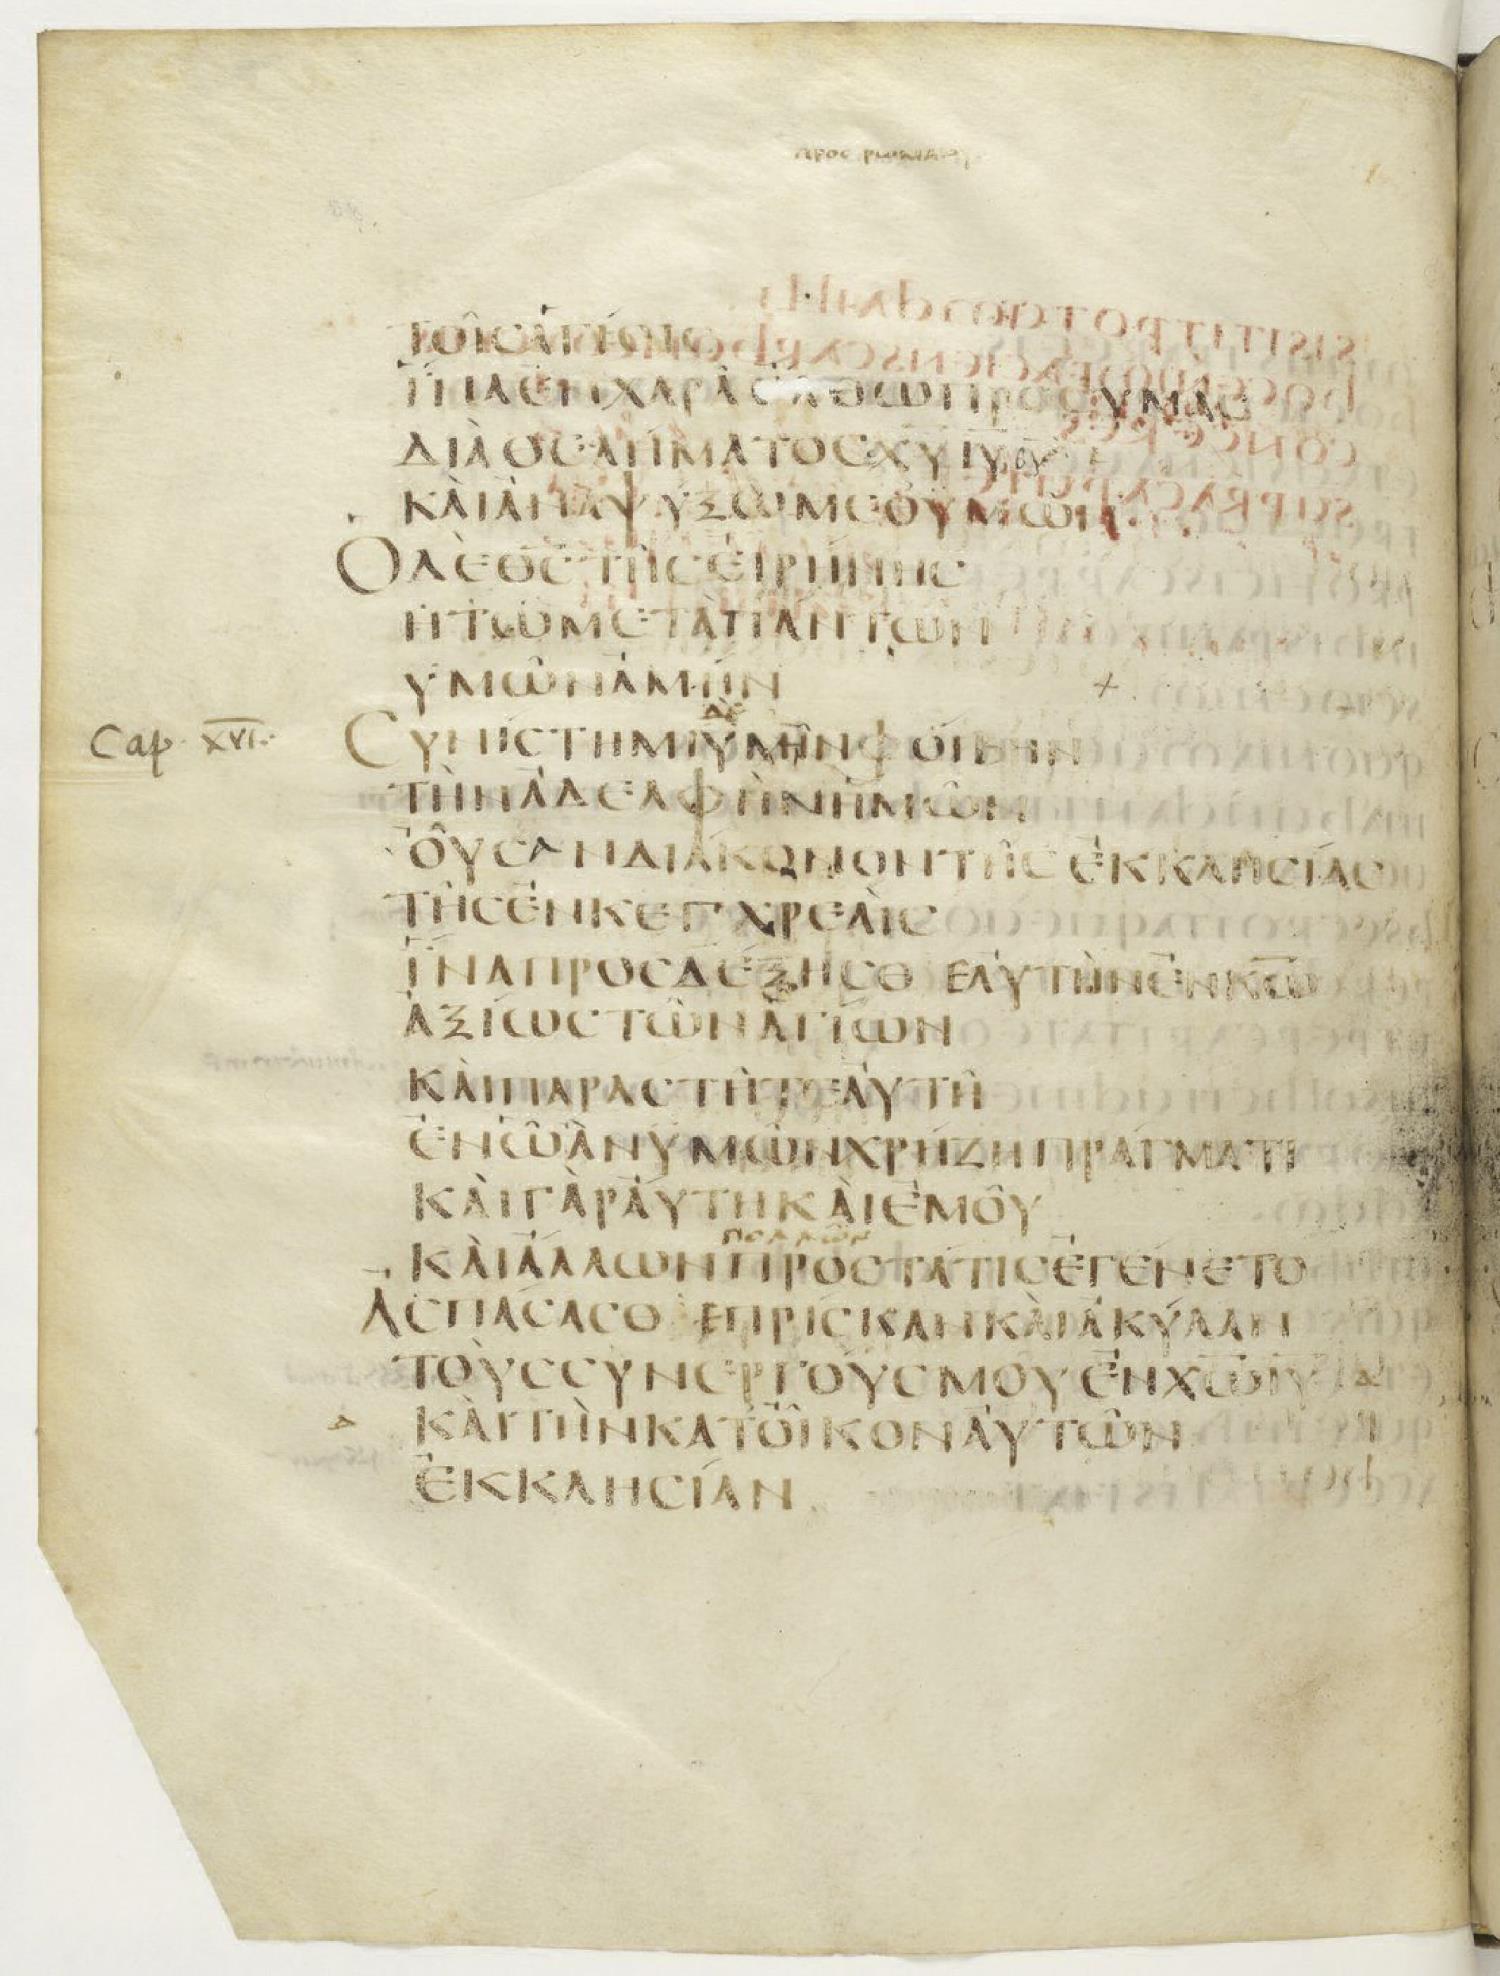 ΠΡΟΣ ΡΩΜΑΙΟΥΣ
ΤΟΙCΑΓΙΟΙC
ΙΝΑΕΝΧΑΡΑΕΛΘΩΠΡΟC ΥΜΑC
ΔΙΑΘΕΛΗΜΑΤΟCΧΥΙΥ
ΚΑΙΑΝΑΨΥΞΩΜΕΘΥΜΩΝ
ΟΔΕΘCΤΗCΕΙΡΗΝΗC
ΗΤΩΜΕΤΑΠΑΝΤΩΝ
ΥΜΩΝΑΜΗΝ
Cap. XVI.
δε
CΥΝΙCΤΗΜΙΥΜΙΝΦΟΙΒΗΝ
ΤΗΝΑΔΕΛΦΗΝΗΜΩΝ
ΟΥCΑΝΔΙΑΚΟΝΟΝΤΗCΕΚΚΛΗCΙΑC
ΤΗCΕΝΚΕΓΧΡΕΑΙC
ΙΝΑΠΡΟCΔΕΞΗCΘ ΕΑΥΤΗΝΕΝΚΩ
ΑΞΙΩCΤΩΝΑΓΙΩΝ
ΚΑΙΠΑΡΑCΤΗΤΕΑΥΤΗ
ΕΝΩΑΝΥΜΩΝΧΡΗΖΗΠΡΑΓΜΑΤΙ
ΚΑΙΓΑΡΑΥΤΗΚΑΙΕΜΟΥ
πολλῶν
ΚΑΙΑΛΛΩΝΠΡΟCΤΑΤΙCΕΓΕΝΕΤΟ
ΑCΠΑCΑCΘ ΕΠΡΙCΚΑΝΚΑΙΑΚΥΛΑΝ
ΤΟΥCCΥΝΕΡΓΟΥCΜΟΥΕΝΧΩΙΥ
ΚΑΙΤΗΝΚΑΤΟΙΚΟΝΑΥΤΩΝ
ΕΚΚΛΗCΙΑΝ